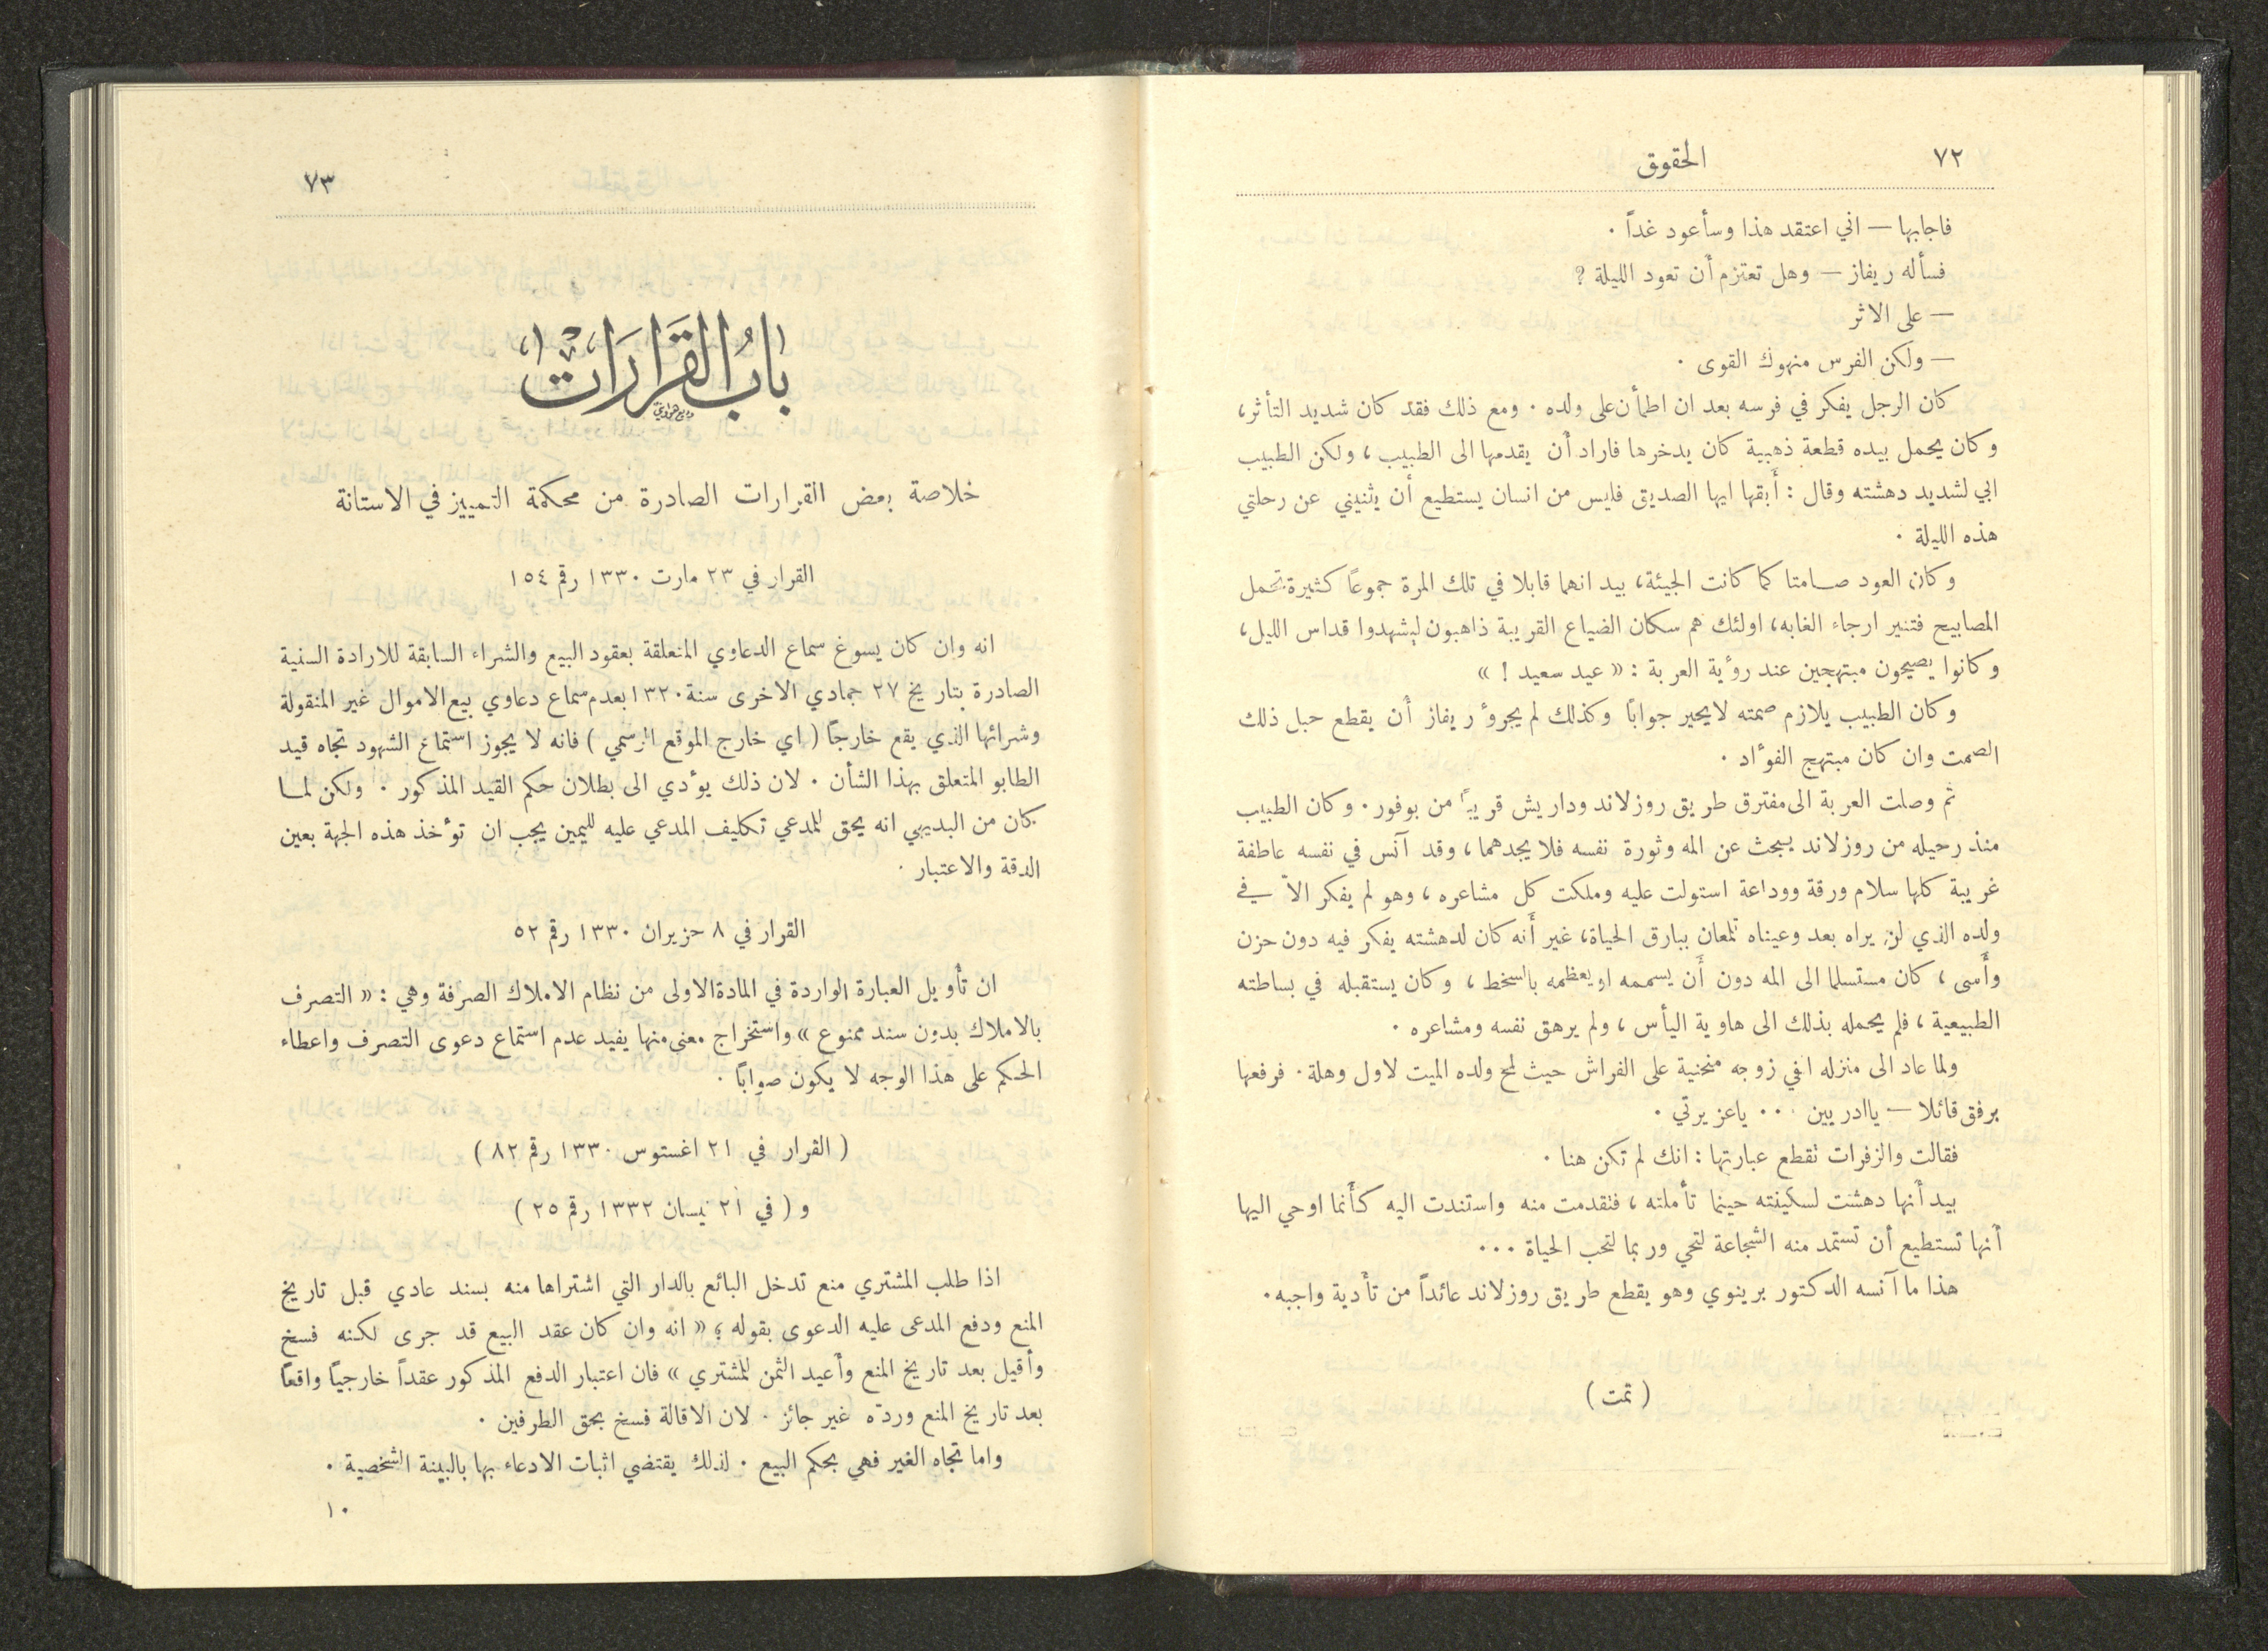 ٧٢
الحقوق
فاجابها — اني اعتقد هذا وسأعود غداً ·
فسأله ريفاز — وهل تعتزم أن تعود الليلة ؟
— على الاثر
— ولكن الفرس منهوك القوى ·
كان الرجل يفكر في فرسه بعد ان اطمأن على ولده · ومع ذلك فقد كان شديد التأثر،
وكان يحمل بيده قطعة ذهبية كان يدخرها فاراد أن يقدمها الى الطبيب ، ولكن الطبيب
ابي لشديد دهشته وقال : أبقها ايها الصديق فليس من انسان يستطيع أن يثنيني عن رحلتي
هذه الليلة ·
وكان العود صامتا كما كانت الجيئة، بيد انهما قابلا في تلك المرة جموعاً كثيرة تحمل
المصابيح فتنير ارجاء الغابه، اولئك هم سكان الضياع القريبة ذاهبون ليشهدوا قداس الليل،
وكانوا يصيحون مبتهجين عند رؤية العربة : « عيد سعيد ! »
وكان الطبيب يلازم صمته لايحير جواباً وكذلك لم يجروء ريفاز أن يقطع حبل ذلك
الصمت وان كان مبتهج الفوءاد ·
ثم وصلت العربة الى مفترق طريق روزلاند وداريش قريباً من بوفور · وكان الطبيب
منذ رحيله من روزلاند يبحث عن المه وثورة نفسه فلا يجدهما ، وقد آنس في نفسه عاطفة
غريبة كلها سلام ورقة ووداعة استولت عليه وملكت كل مشاعره ، وهو لم يفكر الاّ في
ولده الذي لن يراه بعد وعيناه تلمعان ببارق الحياة، غير أنه كان لدهشته يفكر فيه دون حزن
وأسى ، كان مستسلما الى المه دون أن يسممه او يعظمه بالسخط ، وكان يستقبله في بساطته
الطبيعية ، فلم يحمله بذلك الى هاوية اليأس ، ولم يرهق نفسه ومشاعره ·
ولما عاد الى منزله الفي زوجه منحنية على الفراش حيث لمح ولده الميت لاول وهلة · فرفعها
برفق قائلا — ياادريين ··· ياعزيزتي ·
فقالت والزفرات تقطع عبارتها : انك لم تكن هنا ·
بيد أنها دهشت لسكينته حينما تأملته ، فتقدمت منه واستندت اليه كأنما اوحي اليها
أنها تستطيع أن تستمد منه الشجاعة لتحي وربما لتحب الحياة ···
هذا ما آنسه الدكتور برينوي وهو يقطع طريق روزلاند عائداً من تأدية واجبه ·
( تمت )
٧٣
باب القرارات
خلاصة بعض القرارات الصادرة من محكمة التمييز في الاستانة
القرار في ٢٣ مارت ١٣٣٠ رقم ١٥٤
انه وان كان يسوغ سماع الدعاوي المتعلقة بعقود البيع والشراء السابقة للارادة السنية
الصادرة بتاريخ ٢٧ جمادي الاخرى سنة ١٣٢٠ بعدم سماع دعاوي بيع الاموال غير المنقولة
وشرائها الذي يقع خارجاً ( اي خارج الموقع الرسمي ) فانه لا يجوز استماع الشهود تجاه قيد
الطابو المتعلق بهذا الشأن · لان ذلك يوءدي الى بطلان حكم القيد المذكور · ولكن لما
كان من البديهي انه يحق للمدعي تكليف المدعي عليه لليمين يجب ان توءخذ هذه الجهة بعين
الدقة والاعتبار ·
القرار في ٨ حزيران ١٣٣٠ رقم ٥٢
ان تأويل العبارة الواردة في المادة الاولى من نظام الاملاك الصرفة وهي : « التصرف
بالاملاك بدون سند ممنوع » واستخراج معنى منها يفيد عدم استماع دعوى التصرف واعطاء
الحكم على هذا الوجه لا يكون صواباً ·
( القرار في ٢١ اغستوس ١٣٣٠ رقم ٨٢ )
و ( في ٢١ نيسان ١٣٣٢ رقم ٢٥ )
اذا طلب المشتري منع تدخل البائع بالدار التي اشتراها منه بسند عادي قبل تاريخ
المنع ودفع المدعى عليه الدعوى بقوله ؛ « انه وان كان عقد البيع قد جرى لكنه فسخ
وأقيل بعد تاريخ المنع وأعيد الثمن للمشتري » فان اعتبار الدفع المذكور عقداً خارجياً واقعاً
بعد تاريخ المنع وردّه غير جائز · لان الاقالة فسخ بحق الطرفين ·
واما تجاه الغير فهي بحكم البيع · لذلك يقتضي اثبات الادعاء بها بالبينة الشخصية ·
١٠